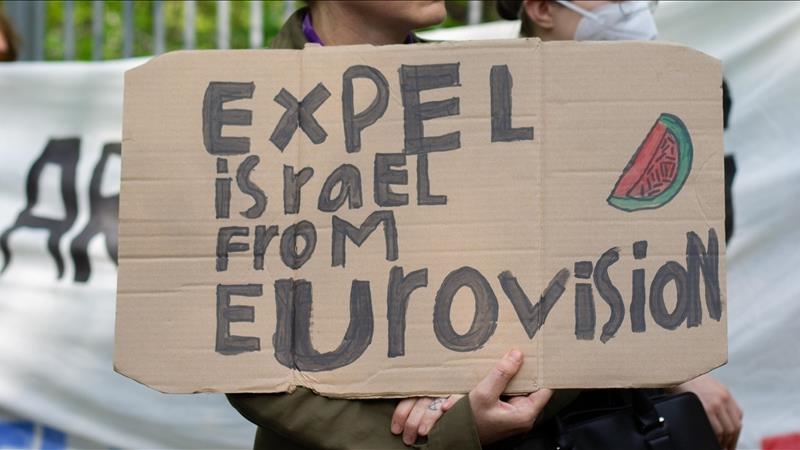 EXPEL
israEL
From
EUrovision
AR